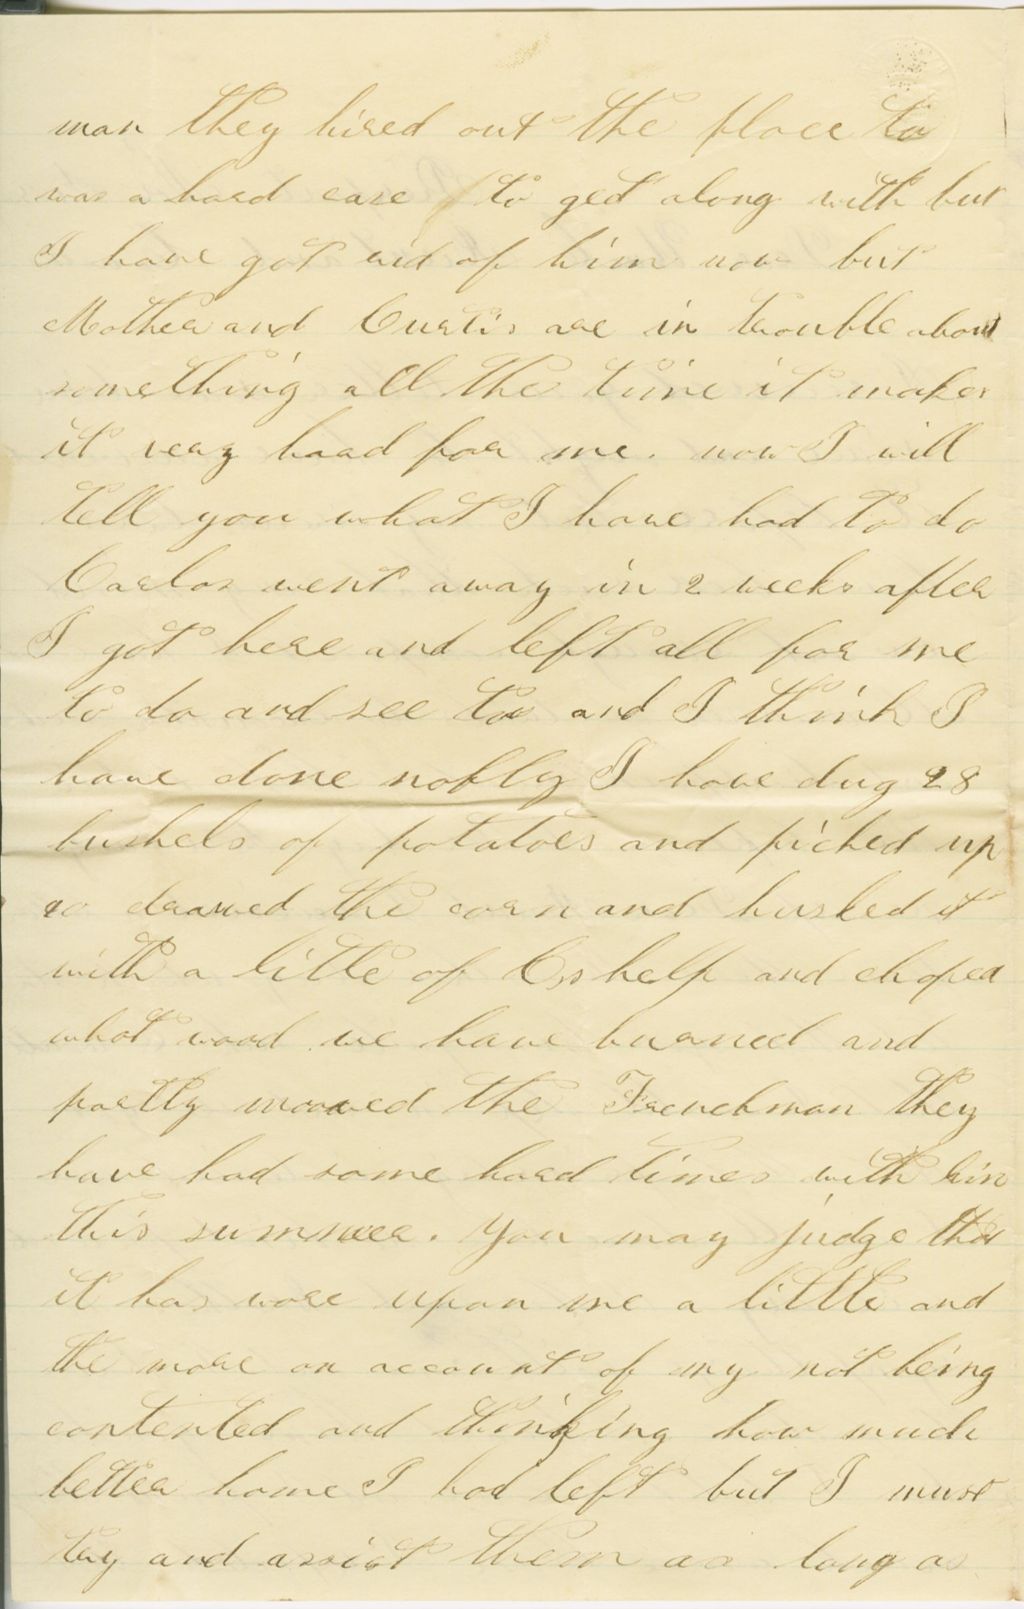 man they hired out the place to
was a hard case to get along with but
I have got rid of him now but
Mother and Curtis are in trouble about
something all the time it makes
it very hard for me. now I will
tell you what I have had to do
Carlos went away in 2 weeks after
I got here and left all for me
to do and see to and I think I
have done nobly I have dug 28
bushels of potatoes and picked up
drawed the corn and husked it
with a little of Cs help and choped
what wood we have burned and
partly mooved the Frenchman they
have had some hard times with him
this summer. You may judge that
it has wore upon me a little and
the more on account of my not being
contented and thinking how much
better home I had left but I must
try and assist them as long as